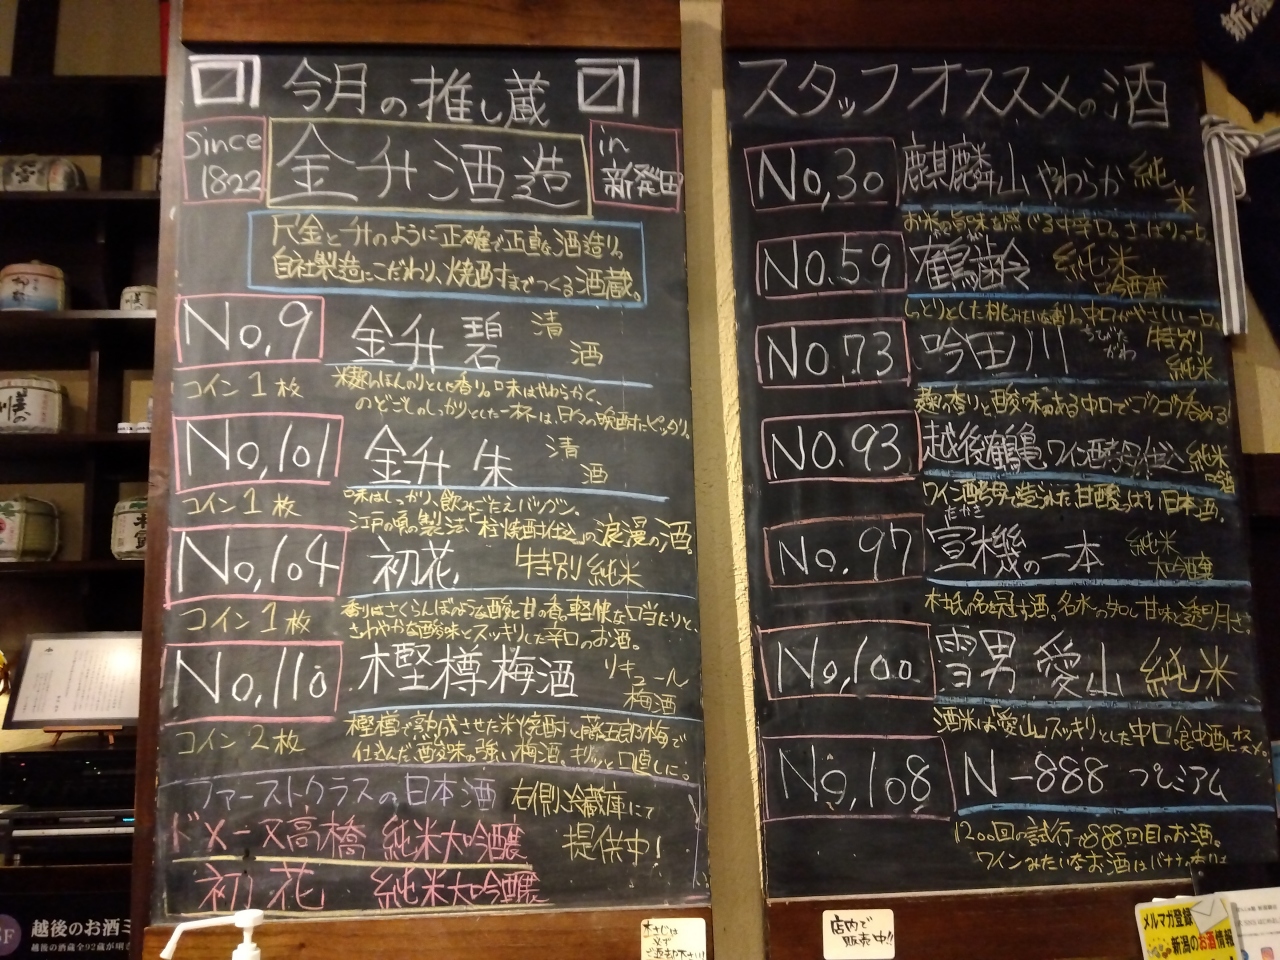 今月の推し蔵
since 1822
金升酒造
in 新発田
尺金と升のように正確で正直な酒造り。
自社製造にこだわり、焼酎までつくる酒蔵。
No,9 金升 碧 清酒
コイン1枚
ほんのりとした香り。味はやわらかく、
のどごしのしっかりとした一杯は、日々の晩酌にピッタリ。
No,101 金升 朱 清酒
コイン1枚
味はしっかり、飲みごたえバツグン。
江戸の頃の製法「柱焼酎仕込」の浪漫の酒。
No,104 初花 特別純米
コイン1枚
香りはさくらんぼのような酸と甘の香。軽快な口当たりと、
さわやかな酸味とスッキリした辛口のお酒。
No,110 樫樽梅酒 リキュール 梅酒
コイン2枚
樫樽で熟成させた米焼酎に藤五郎梅で
仕込んだ、酸味の強い梅酒。キリッと口直しに。
ファーストクラスの日本酒 右側冷蔵庫にて
提供中!
ドメーヌ高橋 純米大吟醸
初花 純米大吟醸
スタッフオススメの酒
No,30 麒麟山 やわらか 純米
お米の旨味を感じる中辛口。
NO.59 鶴齢 純米吟醸
しっとりとした桃みたいな香り。中口がやさしい
NO.73 吟田川 ちびたがわ 特別純米
麹の香りと酸味のある中口でゴクゴク呑める
NO.93 越後鶴亀 ワイン酵母仕込 純米吟醸
ワイン酵母で造られた甘酸っぱい日本酒。
No.97 宣機の一本 たかき 純米大吟醸
名水の如し甘味と透明さ。
No,100 雪男 愛山 純米
酒米は愛山スッキリとした中口、食中酒に
No,108 N-888 プレミアム
1200回の試行で888回目のお酒。
ワインみたいなお酒はバナナの香り
店内で
販売中!!
メルマガ登録
新潟のお酒情報
越後のお酒ミ
新潟